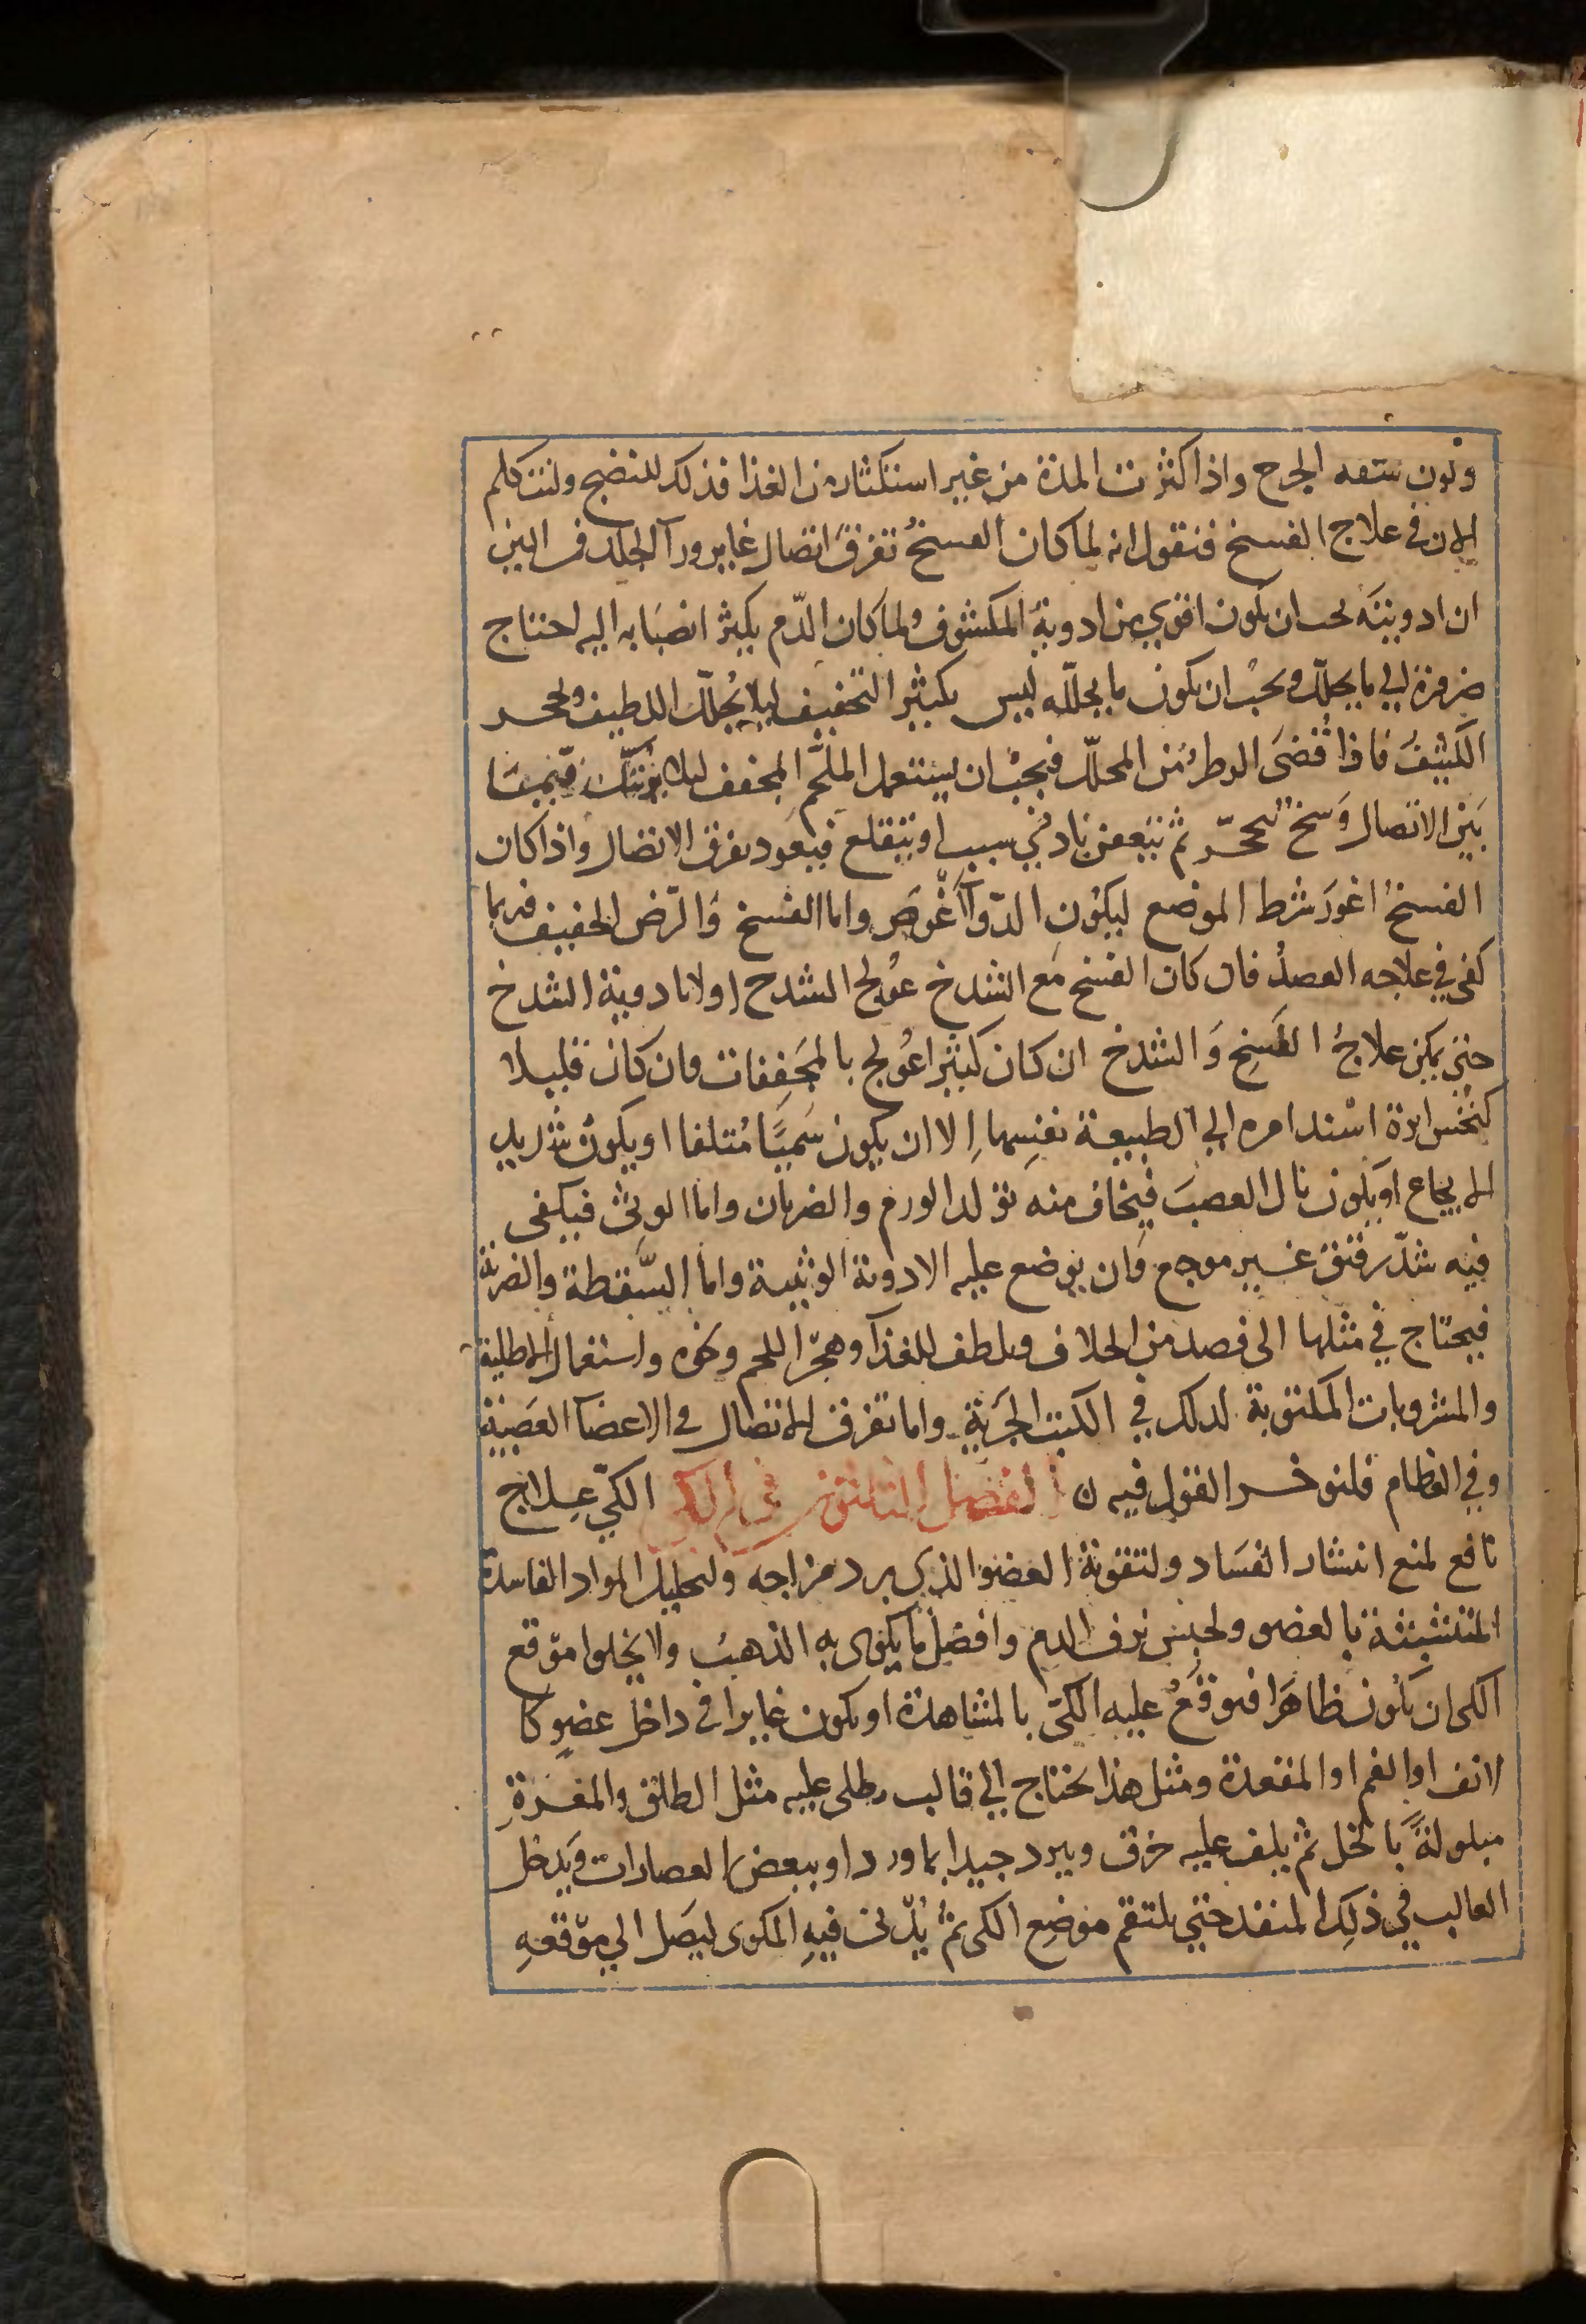 ولون سعه الجرح واذا كثرت المدة من غير استكثار من الغذا فذلك للنضج ولنتكلم
الان في علاج الفسخ فنقول انه لما كان الفسخ تفرق اتصال غاير ورآ الجلد فمن البين
ان ادويته يجب ان تكون اقوي من ادوية المكشوف ولما كان الدّم يكثر انصبابه اليه احتاج
ضرورة الي ما يحلل ويجب ان يكون ما يحلله ليس بكثير التجفيف ليلا يُحلل اللطيف ويحجر
الكثيف فاذا قُضيَ الوطر من المحلل فيجب ان يستعمل الملحم المجفف ليلا يرتبك فيما
بين الاتصال وسخ يتحجّر ثم يتعفن بادني سبب او يتقلع فيعود تفرق الاتصال واذا كان
الفسخ اغور شرط الموضع ليكون الدوآ اغوص واما الفسخ والرض الخفيف فربما
كفي في علاجه الفصد فان كان الفسخ مع الشدخ عولج الشدخ اولا بادوية الشدخ
حتي يمكن علاج الفسخ والشدخ ان كان كثيرا عولج بالمجففات وان كان قليلا
كنخس ابرة اسند امره الي الطبيعة نفسها الا ان يكون سميّا مُتلفا او يكون شديد
الايجاع او يكون نال العصب فيخاف منه تولد الورم والضربان واما الوثي فيكفي
فيه شدّ رقيق غير موجع وان يوضع عليه الادوية الوثيية واما السّقطة والضربة
فيحتاج في مثلها الى فصد من الخلاف وتلطيف للغذآ وهجر اللحم ونحوه واستعمال الاطلية
والمشروبات المكتوبة لذلك في الكتب الجزية واما تفرق الاتصال في الاعضآ العصبية
وفي العظام فلنوخر القول فيه ن الفصل الثلثون في الكي الكي عِلاج
نافع لمنع انتشار الفساد ولتقوية العضو الذي برد مزاجه ولتحليل المواد الفاسدة
المتشبثة بالعضو ولحبس نزف الدم وافضل ما يكوى به الذهب ولا يخلوا موقع
الكى ان يكون ظاهرا فيوقع عليه الكيّ بالمشاهدة او يكون غايرا في داخل عضو كا
لانف او الفم او المقعدة ومثل هذا يحتاج الي قالب يطلى عليه مثل الطلق والمغرة
مبلولةً بالخل ثم يلف عليه خرق ويبرد جيدا بماورد او ببعض العصارات ويدخل
القالب في ذلك المنفذ حتي يلتقم موضع الكى ثم يدس فيه المكوى ليصل الي موقعه